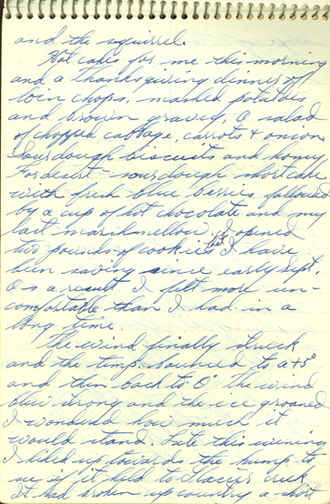 and the squirrel.
Hot cakes for me this morning
and a thanksgiving dinner of
loin chops, mashed potatoes
and brown gravey, a salad
of chopped cabbage, carrots & onion
Sourdough biscuits and honey
For desert - sourdough shortcake
with fresh blue berries followed
by a cup of hot chocolate and my
last marshmellow. I opened
two pounds of cookies that I have
been saving since early Sept.
As a result I felt more un-
comfortable than I had in a
long time.
The wind finally struck
and the temp. bounced to a +5°
and then back to 0° the wind
blew strong and the ice groaned
I wondered how much it
would stand. Late this evening
I hiked up toward the hump to
see if it held to Glacier creek.
It had broken up country a short